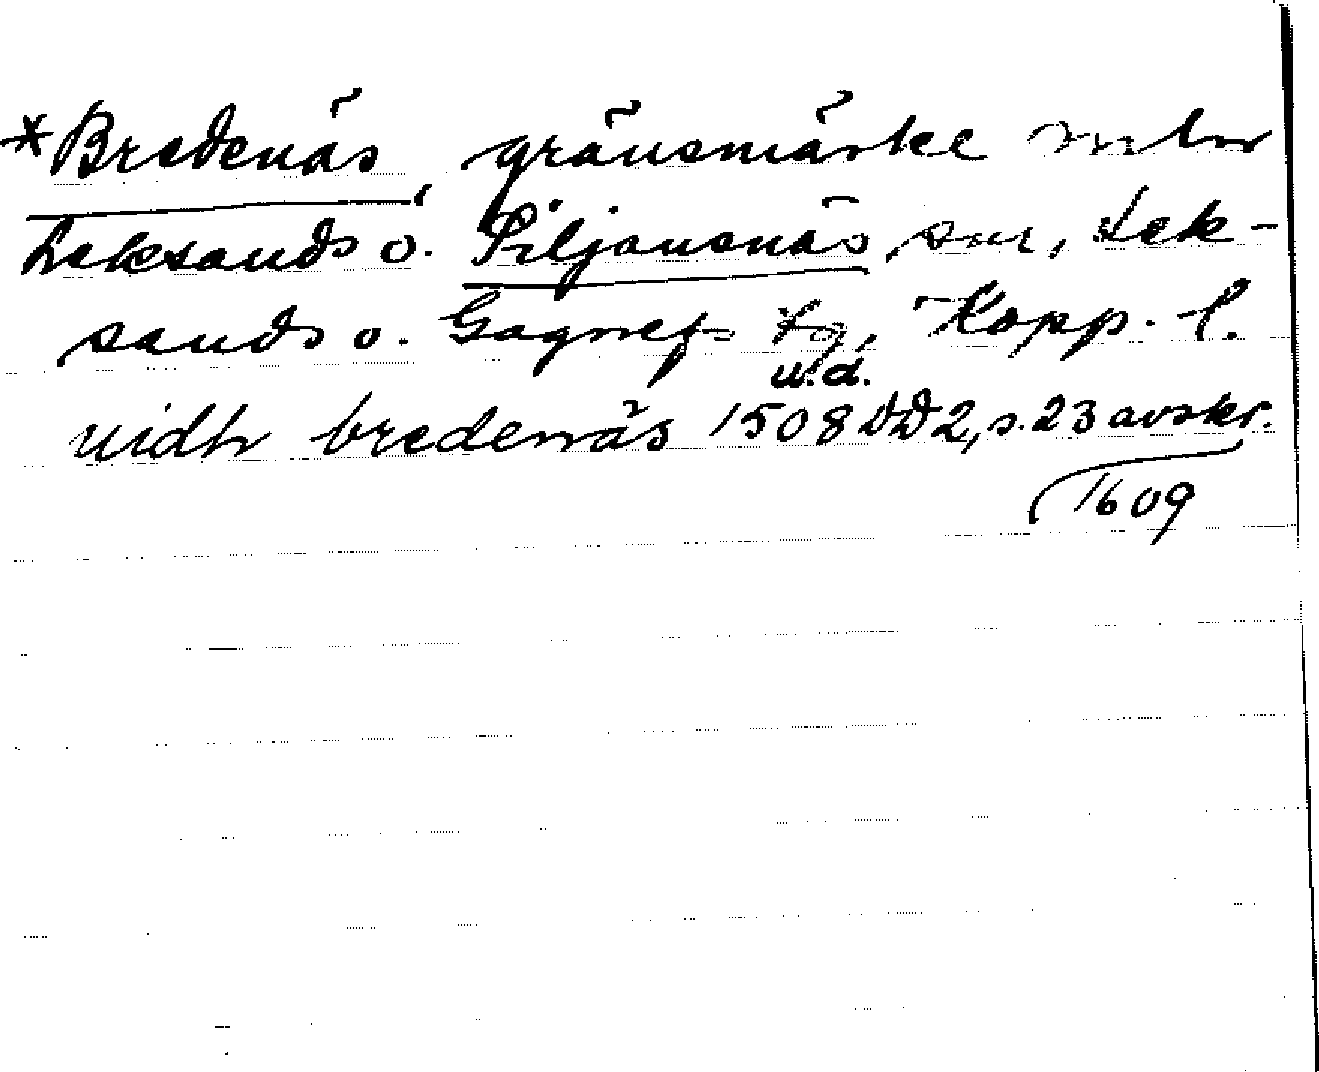 *Bredenäs, gränsmärke mellan
Leksands o. Siljansnäs snr, Lek-
sands o. Gagnefs tg, Kopp. l.
u.d.
vidh bredenäs 1508 DD2, s. 23 avskr.
1609